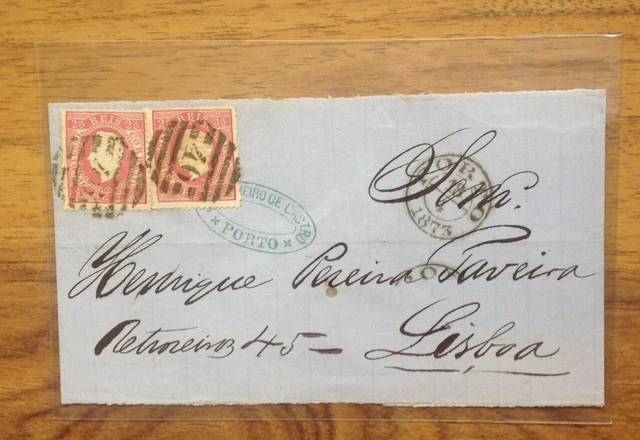 25 REIS 25
REIS 25
EIRO DE CASTRO
PORTO
PORTO
1873
Snr.
Henrique Pereira Taveira
Retrozeiros 45 —
Lisboa